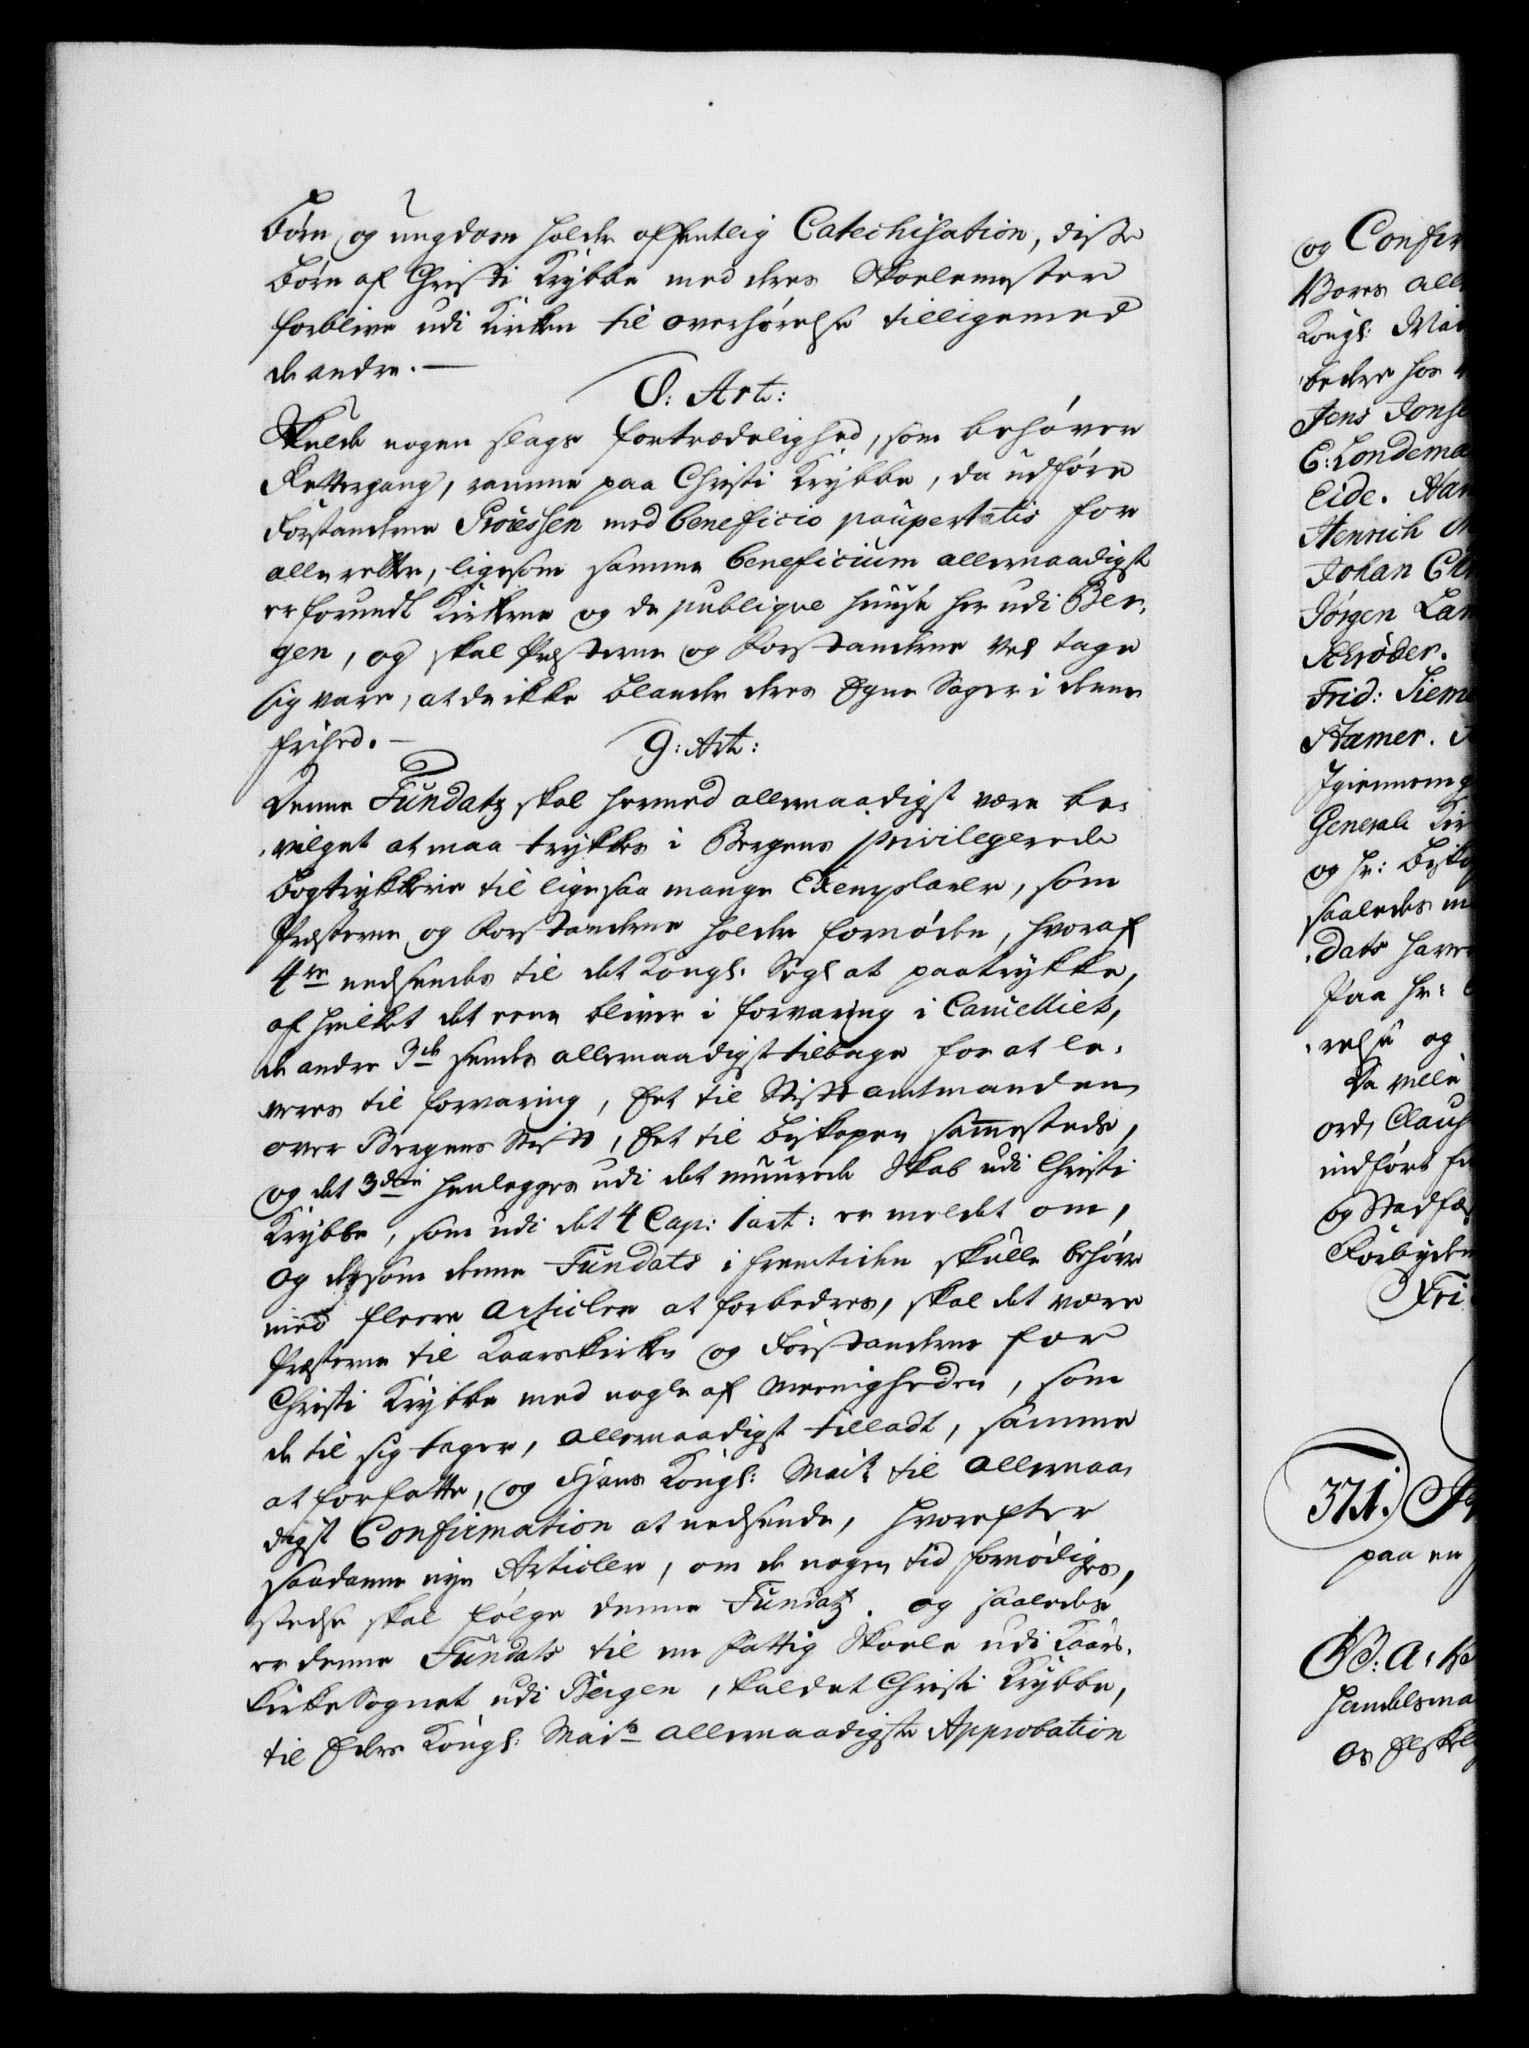 Børn og ungdom holder offentlig Catechisation, disse
Børn af Christi Krybbe med deres Skoelemester
forblive udi Kirken til overhørelse tilligemed
de andre.
8: Art:
Skulde nogen slags fortrædelighed, som behøver
Rettergang, ramme paa Christi Krybbe, da udføre
Forstanderne Processen med beneficio paupertatis for
alle retter, ligesom samme beneficium allernaadigst
er forundt Kirkerne og de publiqve huuse her udi Ber-
gen, og skal Præsterne og Forstanderne vel tage
sig vare, at de ikke blande deres Egne Sager i denne
frihed.
9: Art:
Denne Fundatz skal hermed allernaadigst være be-
vilget at maa trykkes i Bergens privilegerede
bogtrykkerie til ligesaa mange Exemplarer, som
Præsterne og Forstanderne holder fornøden, hvoraf
4re nedsendes til det Kongl: Segl at paatrykke,
af hvilket det eene bliver i forvaring i Cancelliet,
de andre 3de sendes allernaadigst tilbage for at le-
veres til forvaring, Eet til Stiftamtmanden
over Bergens Stift, Eet til Biskopen sammesteds,
og det 3die henlegges udi det muurede Skab udi Christi
Krybbe, som udi det 4 Cap: 1 art: er meldet om,
og dersom denne Fundats i fremtiden skulle behøve
med fleere Articler at forbedres, skal det være
Præsterne til Kaarskirke og Forstanderne for
Christi Krybbe med nogle af Meenigheden, som
de til sig tager, allernaadigst tilladt, samme
at forfatte, og Hans Kongl: Mait til allernaa-
digst Confirmation at nedsende, hvorefter
saadanne nye Articler, om de nogen tid fornødiges,
stedse skal følge denne Fundatz. og saaledes
er denne Fundats til en Fattig Skoele udi Kaars-
kirke Sognet udi Bergen, kaldet Christi Krybbe,
til Eders Kongl: Maits allernaadigste Approbation
og Confir
Vores all
Kongl: Mai
beder hos
Jens Jonse
E: Londema
Eide. Han
Henrich
Johan Chr
Jørgen Lam
Schrøder.
Frid: Siem
Hamer.
Igiennemg
Generale Kir
og Hr: Bisko
saaledes
dats have
paa Hr:
relse og
Da ville
ord, Claus
indført
og Stadfæ
Forbyden
Fri
371.
paa en
handelsma
os Elskel